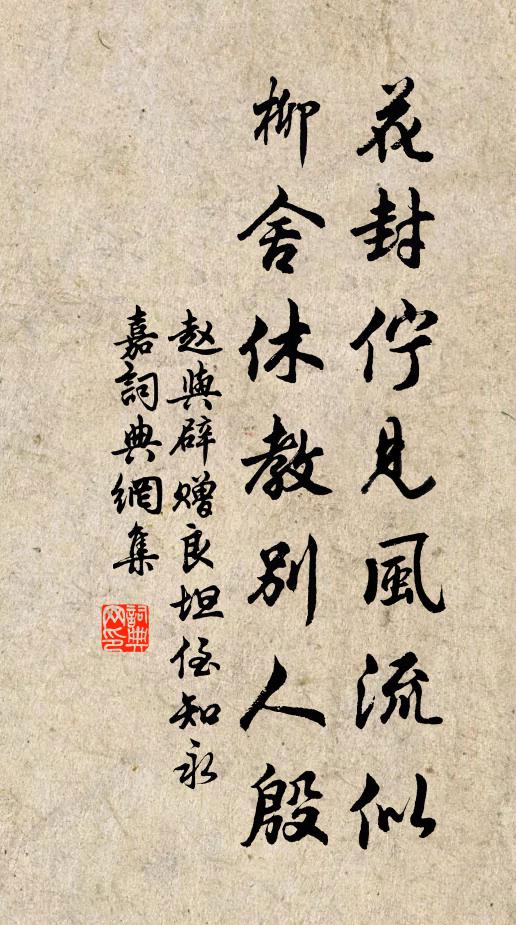 花封佇見風流似
柳舍休教別人殷
赵與辟赠良坦侄知永
嘉詞典網集
詞典
网印